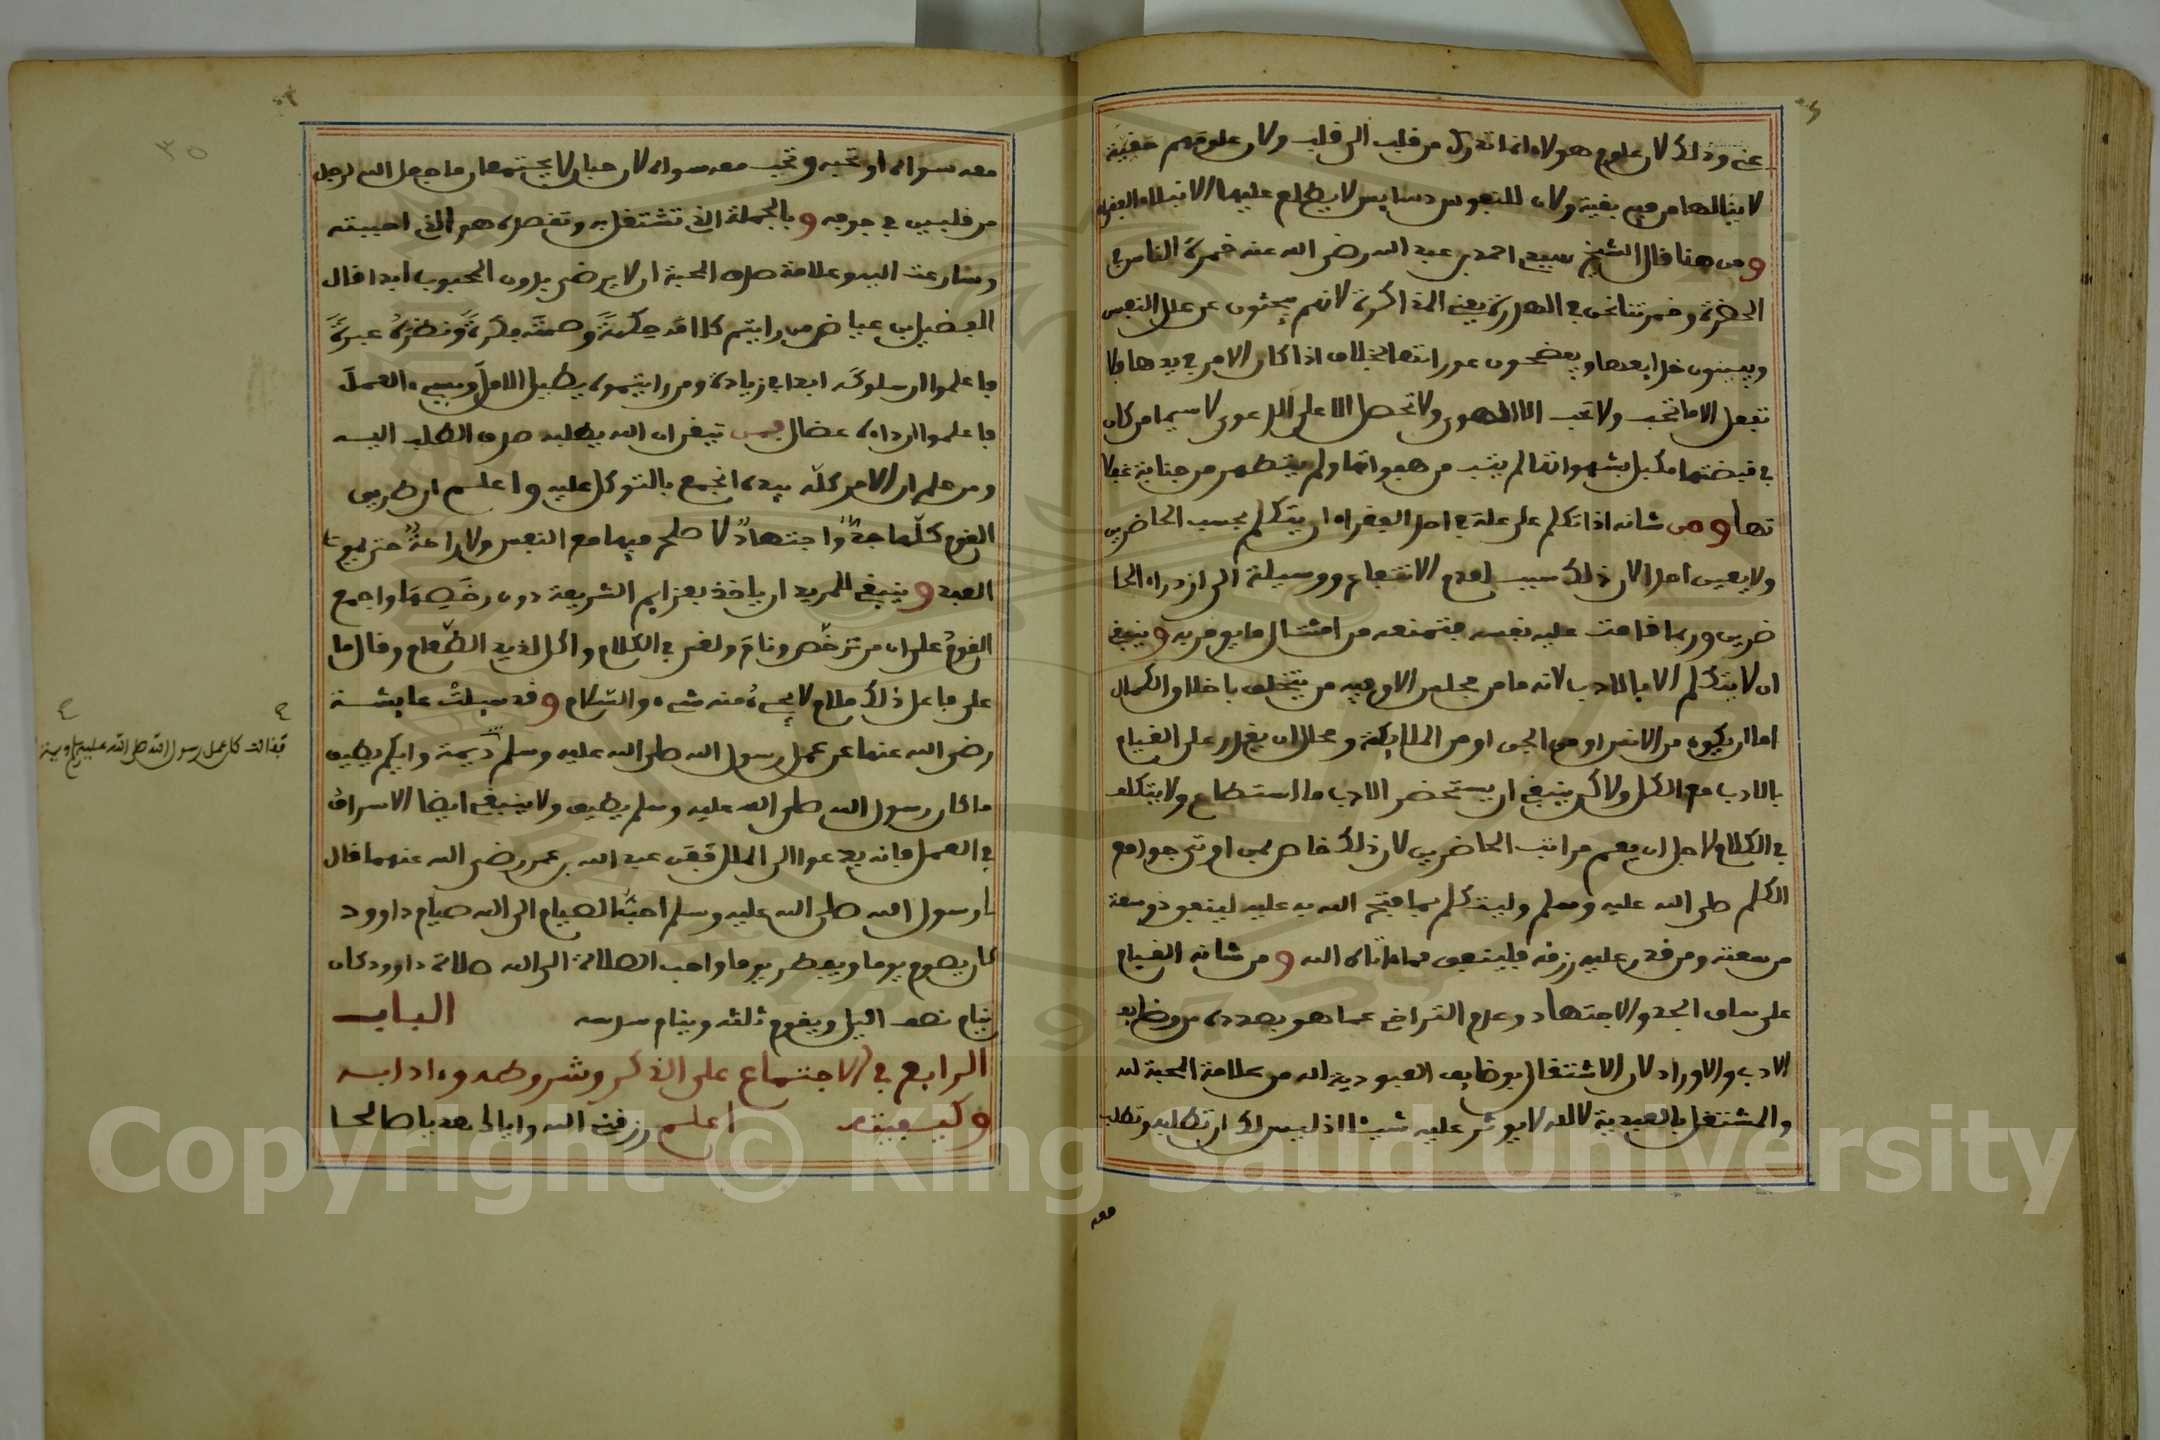 عنه وذلك لان علوم هولاء انما تدرك من قلب الى قلب ولان علومهم خفية
لا ينالها من فيه بقية ولان للنفوس دسايس لا يطلع عليها الا
ومن هنا قال الشيخ سيدي احمد بن عبد الله رضي الله عنه خمرة الناس في
الحضرة وخمرتنا نحن في الهدرة يعني المذاكرة لانهم يبحثون عن علل النفس
ويبينون خدايعها ويفضحون عوراتها بخلاف اذا كان الامر في يدها فلا
تفعل الا ما تحب ولا تحب الا الهوى ولا تحصل الا على الدعوى لا سيما من كان
في قبضتها مكبل بشهواتها لم يتب من هفواتها ولم يتطهر من جنابة غفلا
تها ومن شانه اذا تكلم على علة في احد الفقراء ان يتكلم بحسب الحاضرين
ولا يعين احدا لان ذلك سبب لعدم الانتفاع ووسيلة الى ازدراء الحا
ضرين وربما قامت عليه نفسه فتمنعه من امتثال ما يومر به وينبغي
ان لا يتكلم الا بالادب لانه ما من مجلس الا وفيه من يتخلق باخلاق الكمال
اما ان يكون من الانس او من الجن او من الملايكة ومحال ان يقدر على القيام
بالادب مع الكل ولاكن ينبغي ان يستحضر الادب ما استطاع ولا يتكلف
في الكلام لاجل ان يعم مراتب الحاضرين لان ذلك خاص بمن اوتي جوامع
الكلم صلى الله عليه وسلم وليتكلم بما فتح الله به عليه لينفق ذو سعة
من سعته ومن قدر عليه رزقه فلينفق مما اتاه الله ومن شانه القيام
على ساق الجد والاجتهاد وعدم التراخي عما هو بصدده من وظايف
الادب والاوراد لان الاشتغال بوظايف العبودية لله من علامة المحبة له
والمشتغل بالعبدية لله لا يوثر عليه شيئا اذ ليس لك ان تطلبه وتطلب
معه
معه سواه او تحبه وتحب معه سواه لان حبان لا يجتمعان ما جعل الله لرجل
من قلبين في جوفه وبالجملة الذي تشتغل به وتفضله هو الذي احببته
وسارعت اليه وعلامة صدق المحبة ان لا يرضى بدون المحبوب ابدا قال
الفضيل بن عياض من رايتم كلامه حكمة وصمته فكرة ونظره عبرة
فاعلموا ان سلوكه ابدا في زيادة ومن رايتموه يطيل الامل ويسيء العمل
فاعلموا ان داءه عضال فمن تيقن ان الله يطلبه صرف الطلب اليه
ومن علم ان الامر كله بيده انجمع بالتوكل عليه واعلم ان طريق
القوم كلها جد واجتهاد لا صلح فيها مع النفس ولا راحة حتى يموت
العبد وينبغي للمريد ان ياخذ بعزايم الشريعة دون رخصها واجمع
القوم على ان من ترخص ونام ولغى في الكلام واكل لذيذ الطعام وقال ما
على فاعل ذلك ملام لا يجيء منه شيء والسلام وقد سيلت عايشة
رضي الله عنها عن عمل رسول الله صلى الله عليه وسلم ديمة وايكم يطيق
ما كان رسول الله صلى الله عليه وسلم يطيق ولا ينبغي ايضا الاسراف
في العمل فانه يدعوا الى الملل فعن عبد الله بن عمر رضي الله عنهما قال
رسول الله صلى الله عليه وسلم احب الصيام الى الله صيام داوود
كان يصوم يوما ويفطر يوما واحب الصلاة الى الله صلاة داوود كان
ينام نصف اليل ويقوم ثلثه وينام سدسه الباب
الرابع في الاجتماع على الذكر وشروطه وءادابه
وكيفيته اعلم رزقني الله واياك بعدياصالحا
فقالت كان عمل رسول الله صلى الله عليه وسلم ديمة
٣٥
Copyright © King Saud University